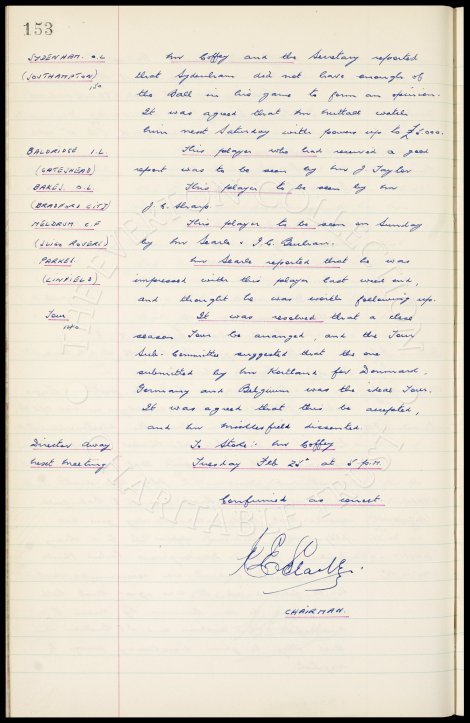 153
SYDENHAM. O.L Mr Coffey and the Secretary reported
(SOUTHAMPTON) that Sydenham did not have enough of
150 the Ball in his game to form an opinion.
It was agreed that Mr Nuttall watch
him next Saturday with powers up to £5,000.
BALDRIDGE I.L. This player who had received a good
(GATESHEAD) report was to be seen by Mr J Taylor
BAKES. O.L. This player to be seen by Mr
(BRADFORD CITY) J. E. Sharp.
MELDRUM C.F This player to be seen on Sunday
(SLIGO ROVERS) by Mr Searle & J. C.
PARKES. Mr Searle reported that he was
(LINFIELD) impressed with this player last week end,
and thought he was worth following up.
Tour It was resolved that a close
season Tour be arranged, and the Tour
Sub. Committee suggested that the one
submitted by Mr for Denmark,
Germany and Belgium was the ideal Tour.
It was agreed that this be accepted,
and Mr Micklesfield dissented.
Director Away To Stoke:- Mr Coffey
Next Meeting Tuesday Feb 25th at 5 p.m.
Confirmed as correct
CHAIRMAN.
THE EVERTON COLLECTION CHARITABLE TRUST